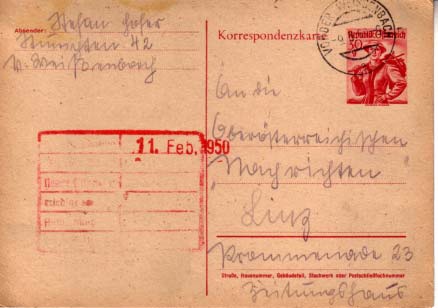 Absender: Stefan Hofer
42
V. Weißenbach
Korrespondenzkarte
VORDERWEISSENBACH
Republik Österreich
30
An die
Oberösterreichischen
"Nachrichten"
Linz
Promenade 23
Zeitungshaus
11. Feb. 1950
Straße, Hausnummer, Gebäudeteil, Stockwerk oder Postschließfachnummer